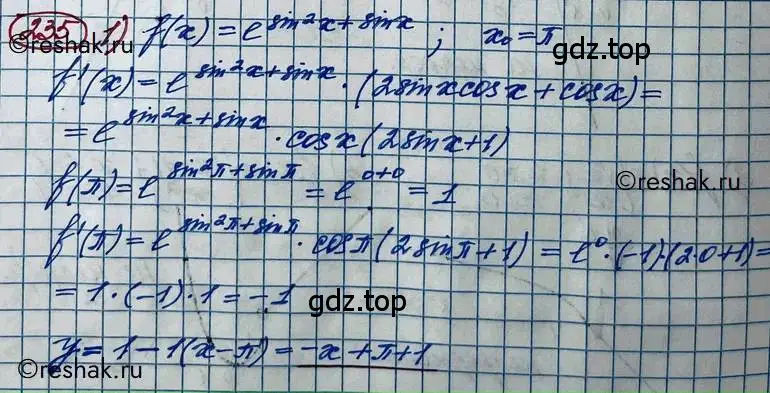 235 1) f(x) = e^(sin²x+sinx) ; x₀ = π
gdz.top
f'(x) = e^(sin²x+sinx) · (2sinxcosx + cosx) =
= e^(sin²x+sinx) · cosx(2sinx+1)
©reshak.ru
f(π) = e^(sin²π+sinπ) = e^(0+0) = 1
©reshak.ru
f'(π) = e^(sin²π+sinπ) · cosπ(2sinπ+1) = e⁰·(-1)·(2·0+1) =
= 1·(-1)·1 = -1
gdz.top
y = 1 - 1(x-π) = -x+π+1
©reshak.ru
©reshak.ru